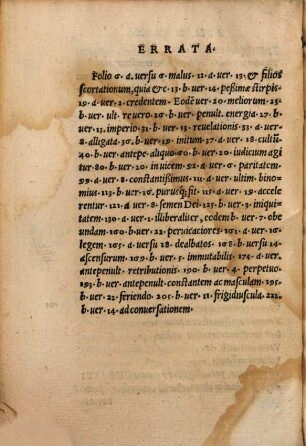 ERRATA.
Folio 6. a. versu 6. malus. 12. a. ver. 13. & filios
scortationum, quia &c. 13. b. ver. 14. pessimæ stirpis
19. a. ver. 2. credentem. Eodē ver. 20. meliorum. 25.
b. ver. ult. revero. 26. b. ver. penult. energia. 27. b.
ver. 13. imperio. 31. b. ver. 13. reuelationis. 53. a. ver.
8. alligata. 36. a. ver. 16. initum. 37. a. ver. 18. cultū.
40. b. ver. antepe. aliquo. 60. b. ver. 20. iudicum agi
tur. 80. b. ver. 20. in uicem. 92. a. ver. 6. paritatem.
99. a. ver. 8. constantissimus. 111. a. ver. ultim. bino=
mius. 113. b. ver. 16. purusq; sit. 115. a. ver. 19. accele
rentur. 121. a. ver. 8. semen Dei. 125. b. ver. 3. iniqui=
tatem. 130. a. ver. 1. illiberaliter, eodem b. ver. 7. obe
undam. 160. b. ver. 22. peruicaciores. 161. a. ver. 16.
legem. 165. a. versu 28. dealbatos. 168. b. versu 14
ascensurum. 169. b. ver. 5. immutabilis. 174. a. ver.
antepenult. retributionis. 190. b. ver. 4. perpetuo.
193. b. ver. antepenult. constantem ac masculam. 195.
b. ver. 22. feriendo. 205. b. ver. 11. frigidiuscula. 222.
b. ver. 14. ad conuersationem.